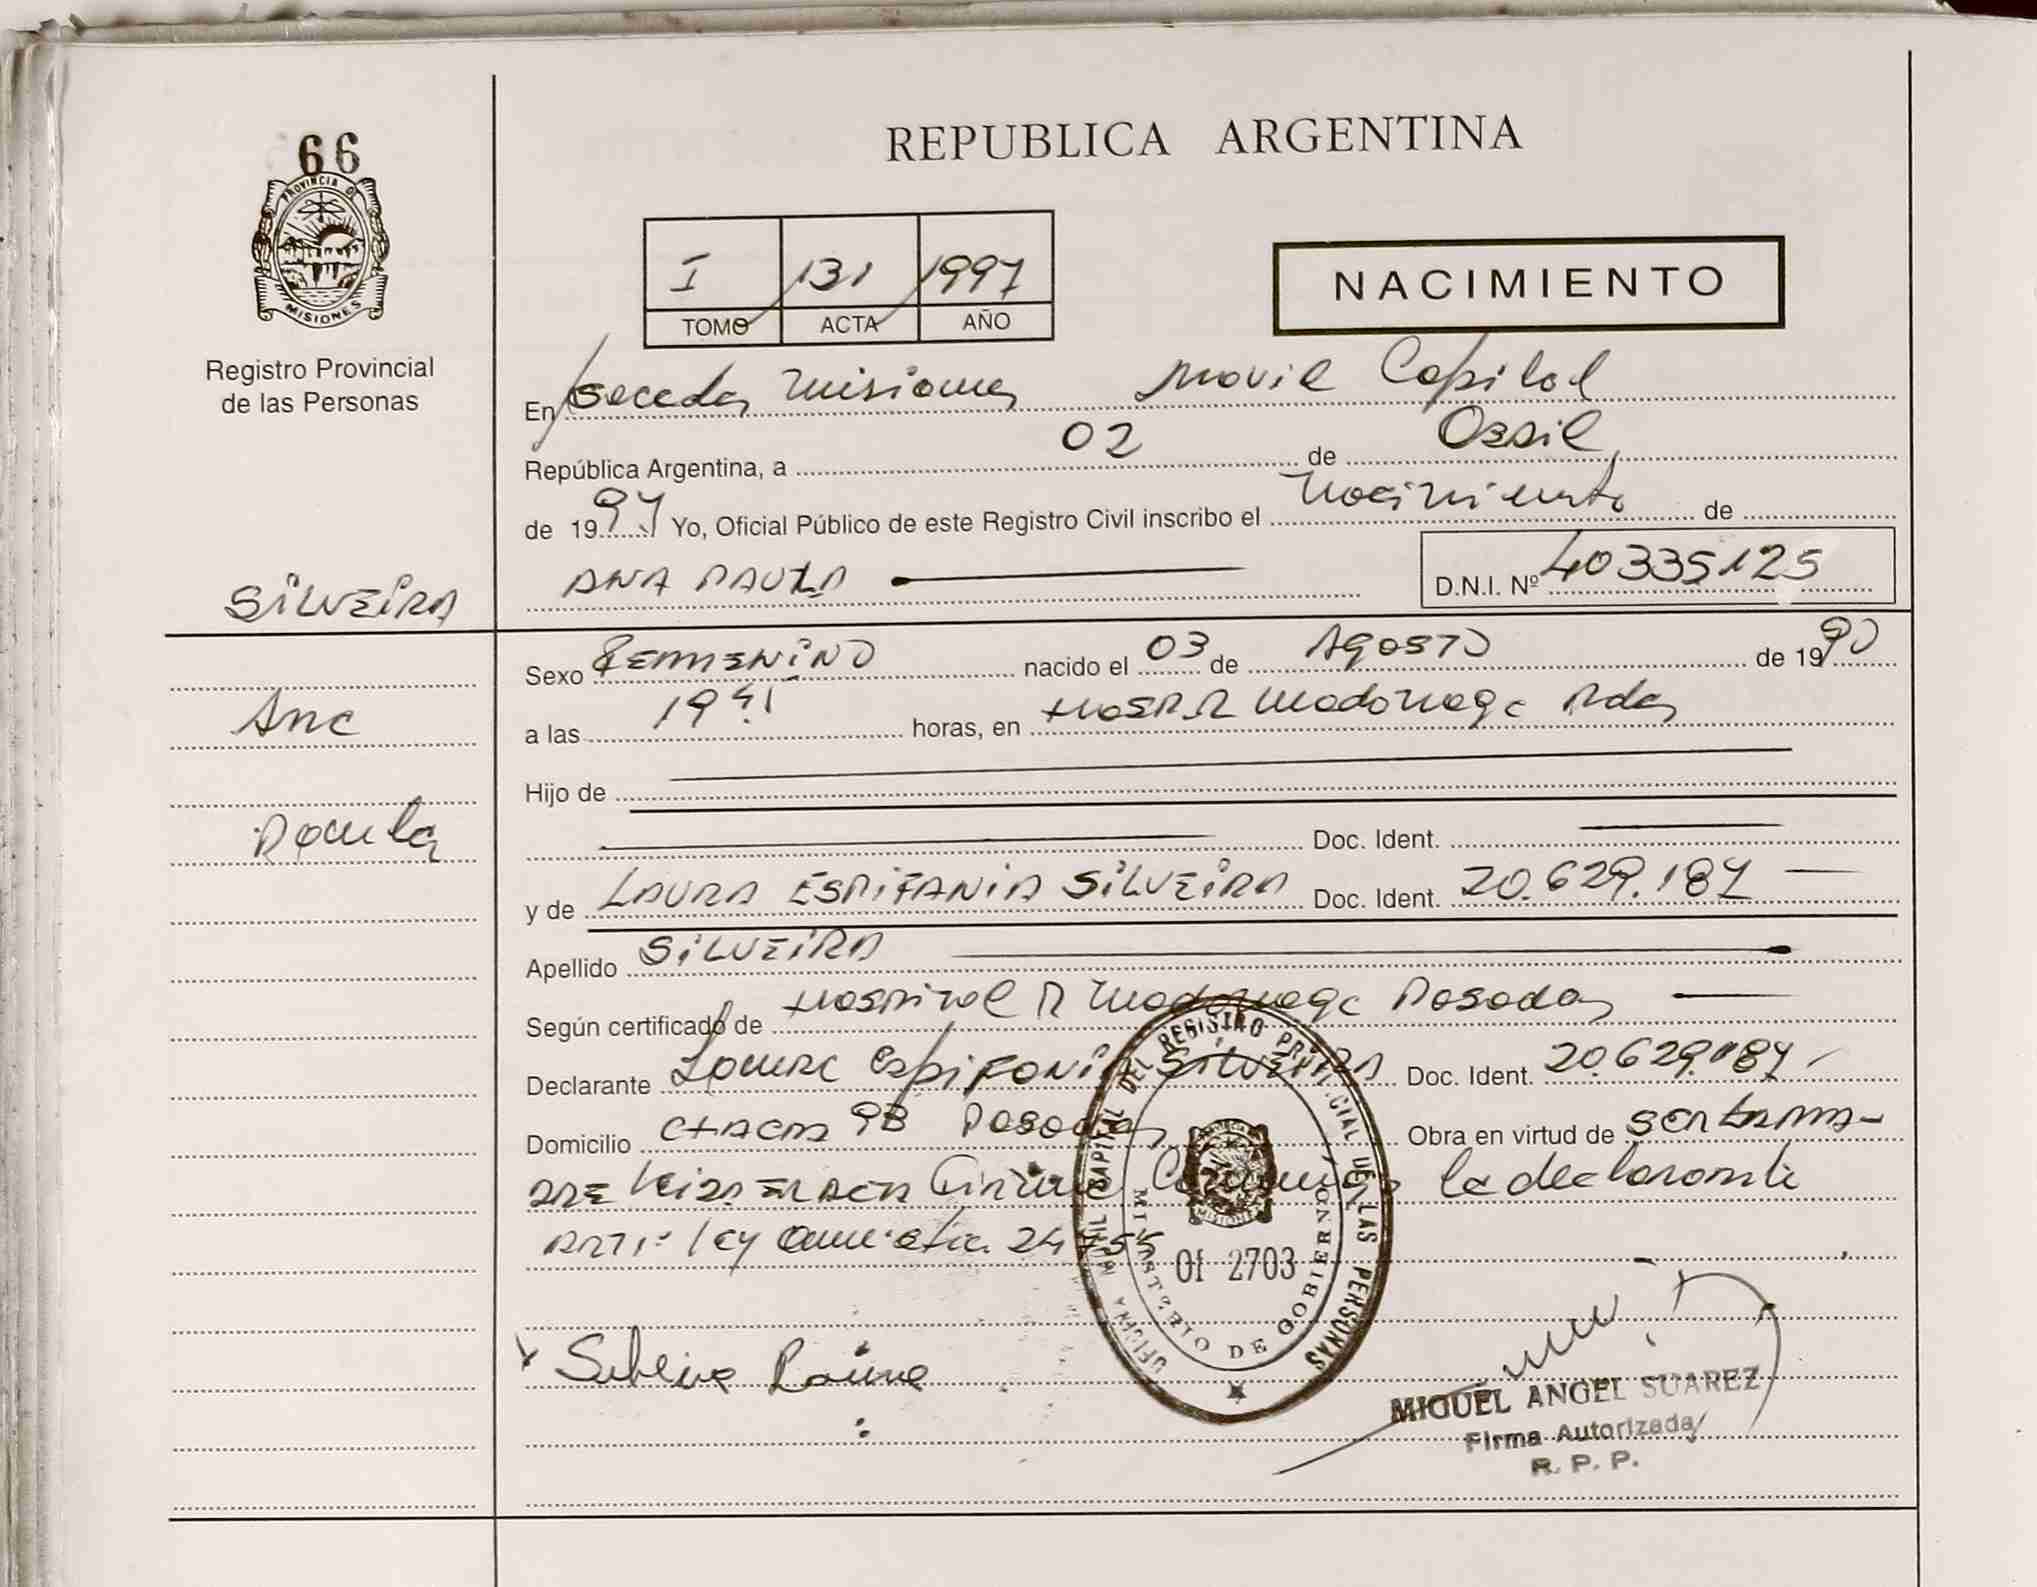 66
PROVINCIA DE
MISIONES
Registro Provincial
de las Personas
REPUBLICA ARGENTINA
I 131 1997
TOMO ACTA AÑO
NACIMIENTO
En Posadas Misiones Movil Capital
República Argentina, a 02 de Abril
de 1997 Yo, Oficial Público de este Registro Civil inscribo el Nacimiento de
ANA PAULA D.N.I. Nº 40335125
SILVEIRA
Ana
Paula
Sexo FEMMENINO nacido el 03 de AGOSTO de 1990
a las 19 horas, en HOSP R Madariaga Pdas
Hijo de
Doc. Ident.
y de LAURA ESPIFANIA SILVEIRA Doc. Ident. 20.629.187
Apellido SILVEIRA
Según certificado de Hospital R Madariaga Posadas
Declarante Laura Espifania SILVEIRA Doc. Ident. 20.629.187
Domicilio CHACRA 98 Posadas Obra en virtud de ser La MA-
DRE la declarante
ART 1º ley Amnistia 24
OFICINA MOVIL CAPITAL DEL REGISTRO PROVINCIAL DE LAS PERSONAS
MINISTERIO DE GOBIERNO
MISIONES
01 2703
MIGUEL ANGEL SUAREZ
Firma Autorizada
R. P. P.